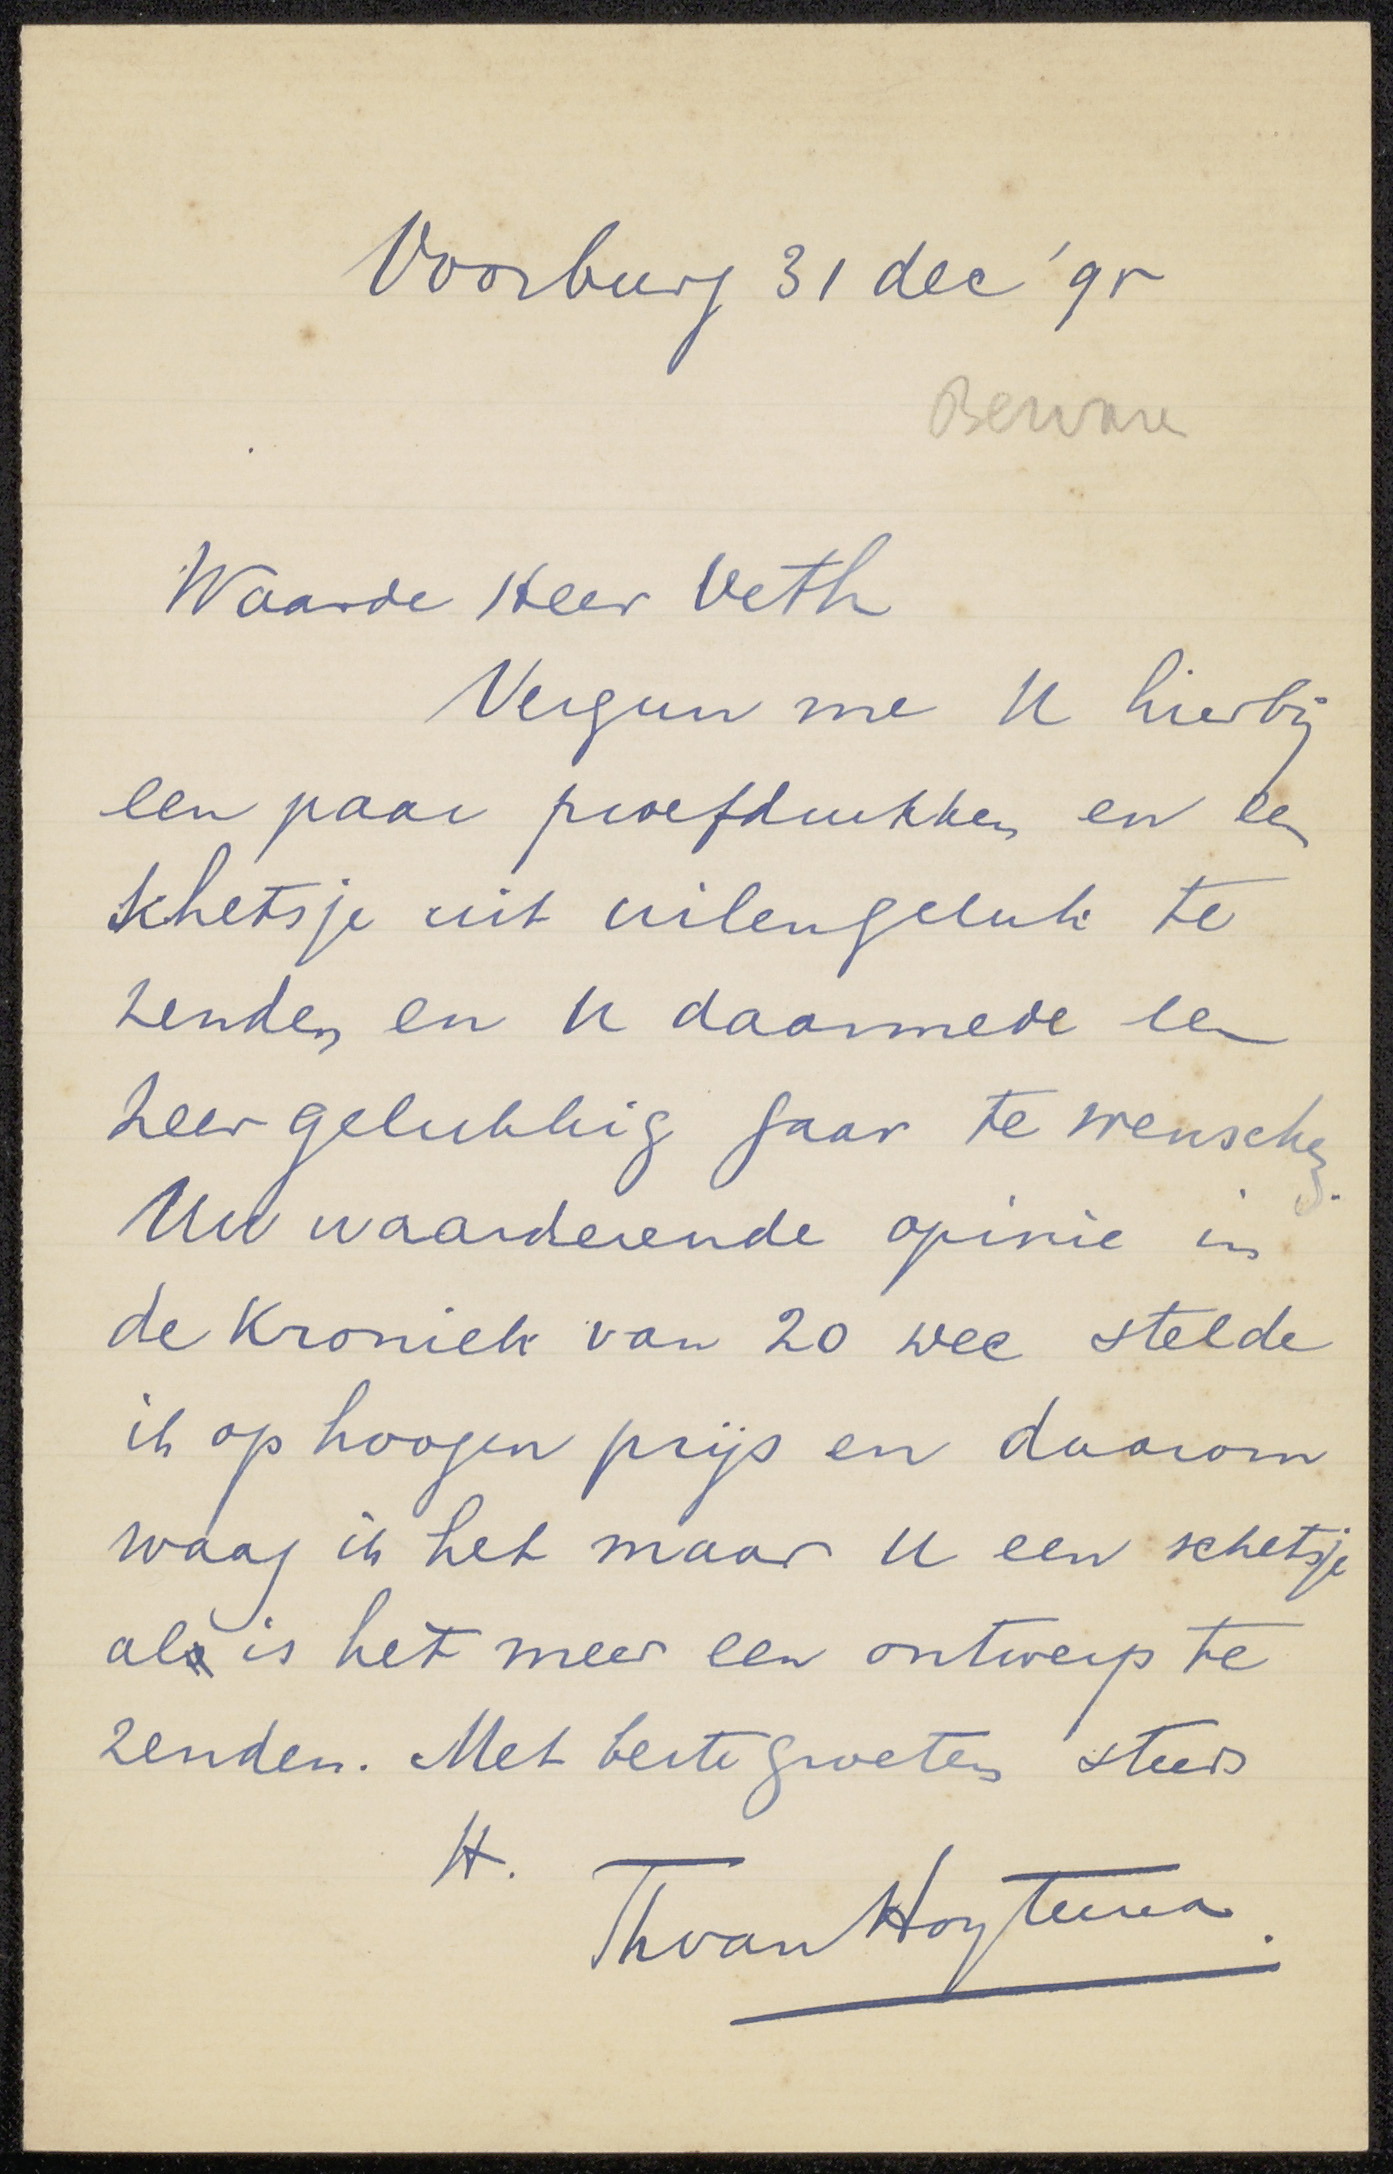 Voorburg 31 dec '95
Bewaren
Waarde Heer Veth
Vergun me U hierbij
een paar proefdrukken en een
schetsje uit uilengeluk te
zenden en U daarmede een
zeer gelukkig jaar te wenschen.
Uw waarderende opinie in
de Kroniek van 20 dec stelde
ik op hoogen prijs en daarom
waag ik het maar U een schetsje
al is het meer een ontwerp te
zenden. Met beste groeten steeds
Th van Hoytema.